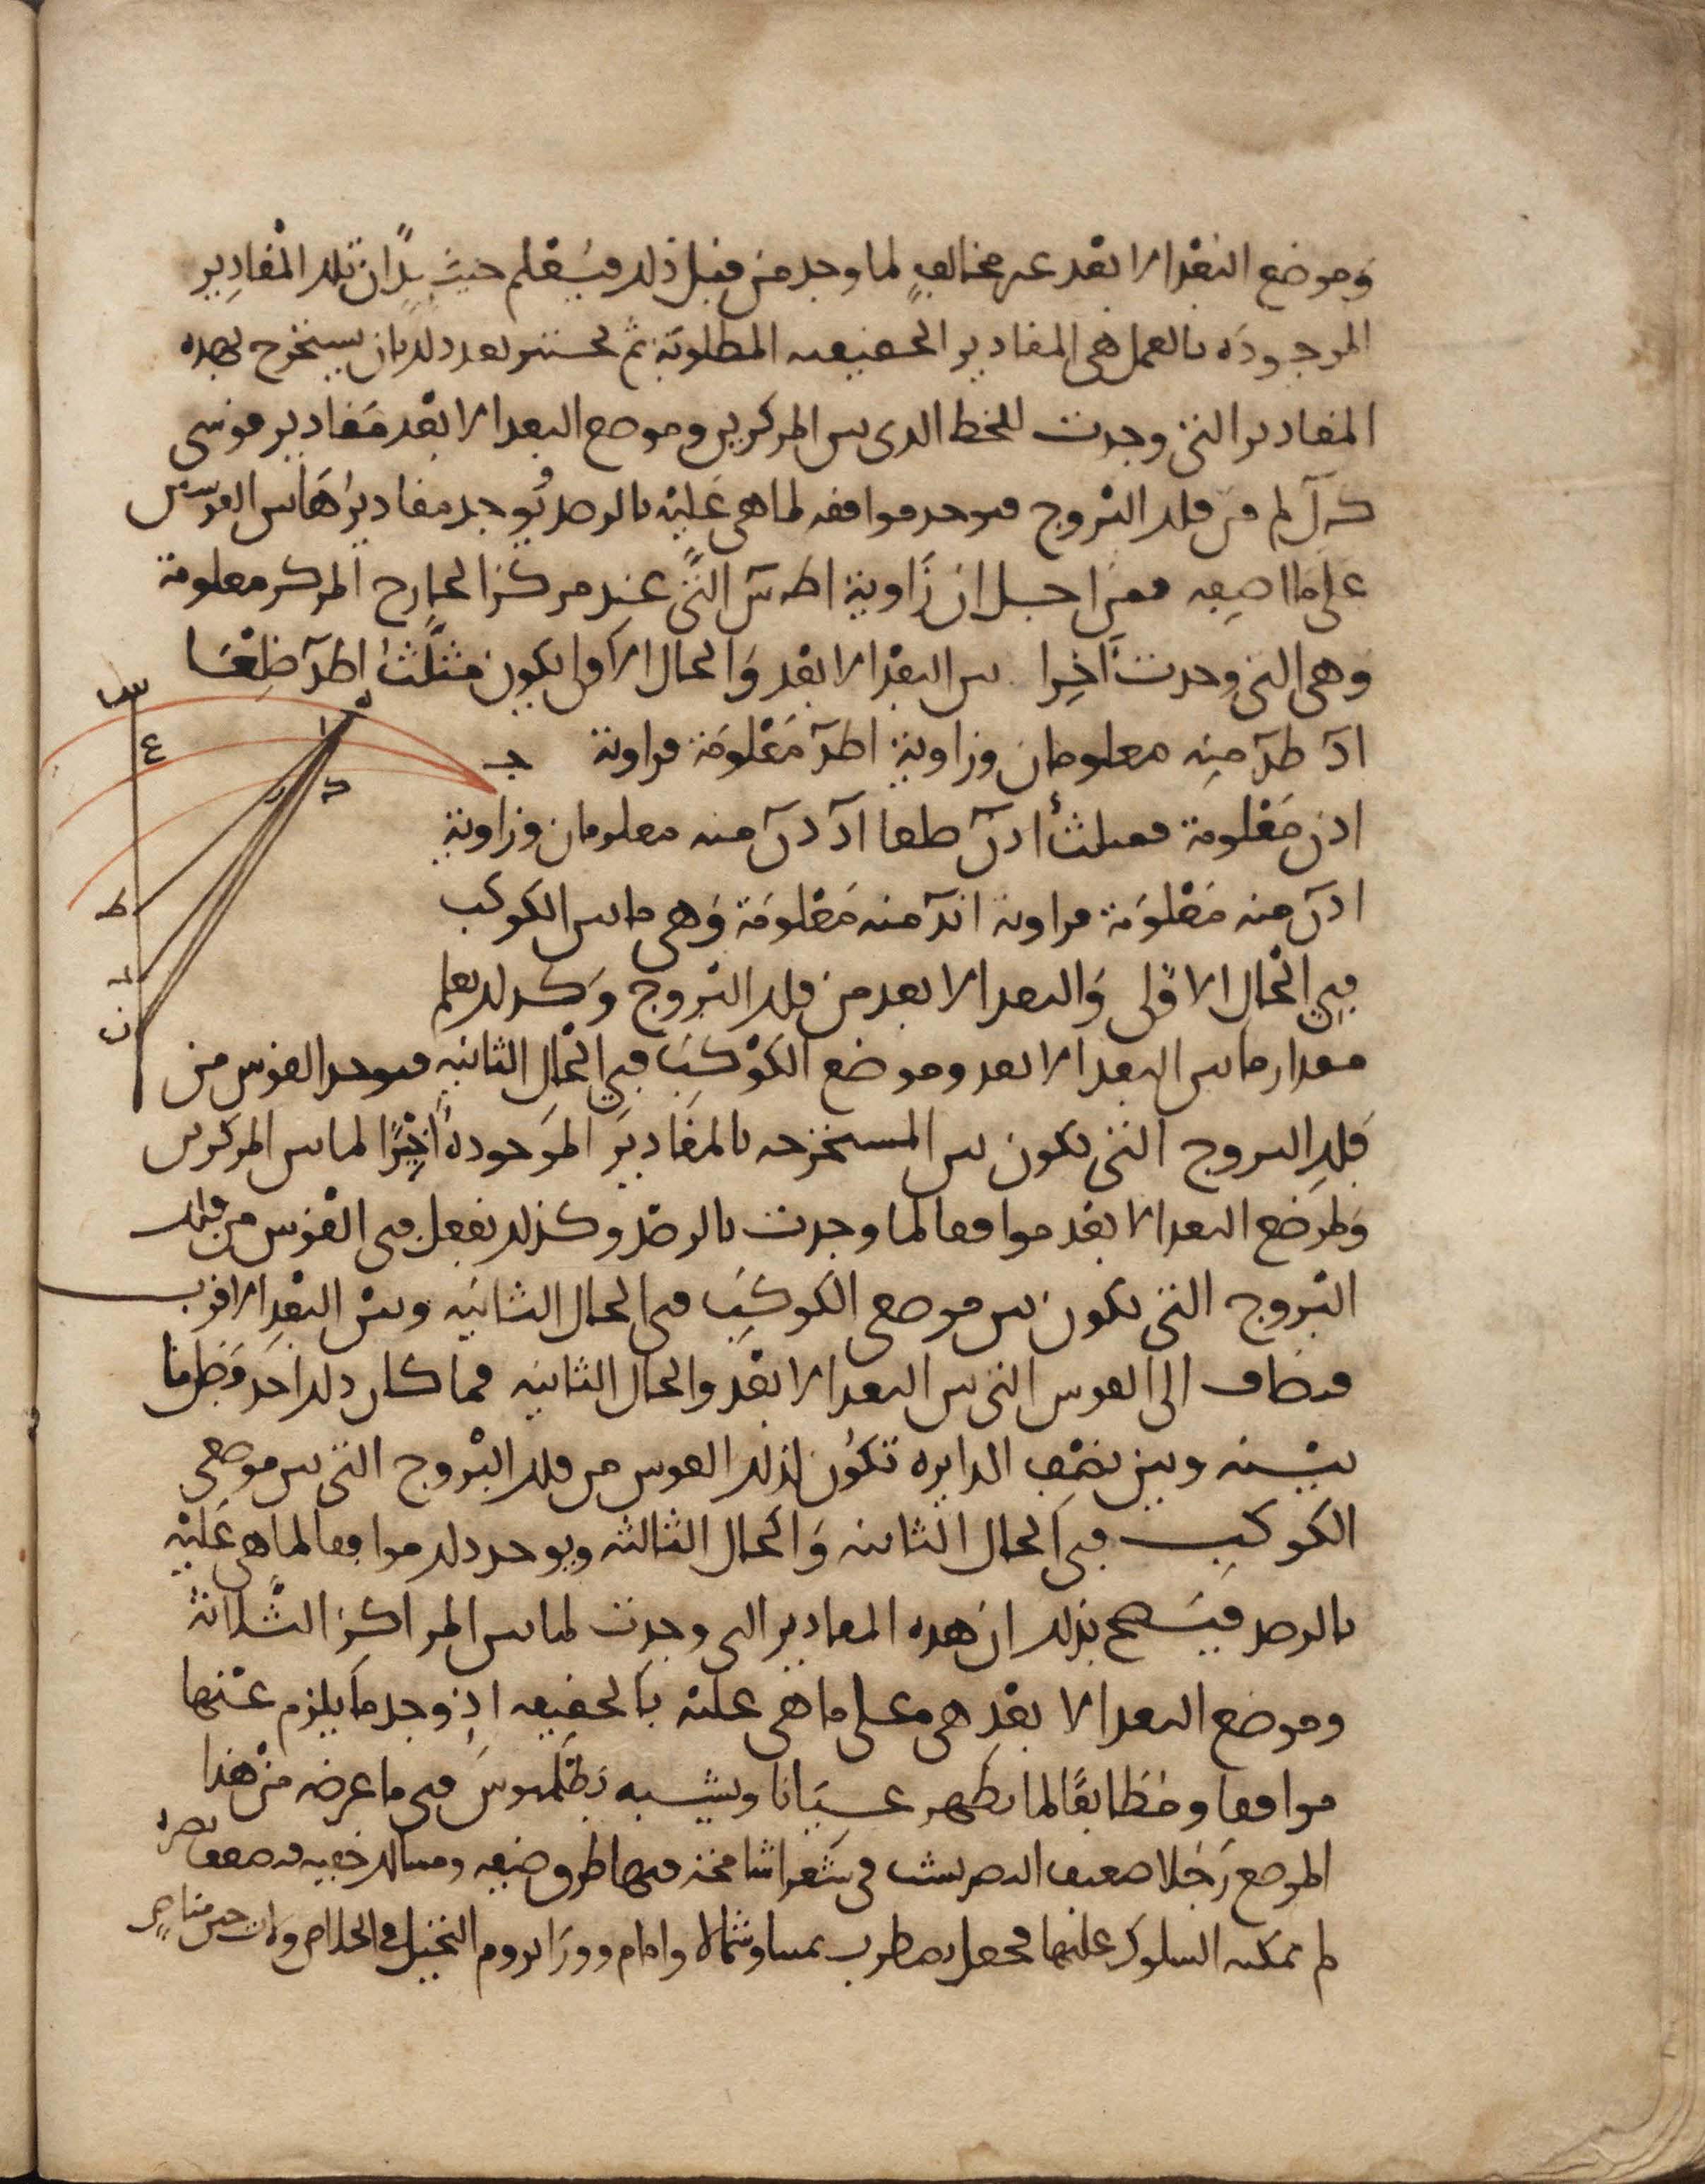 وموضع البعد الابعد غير مخالف لما وجد من قبل ذلك فيعلم حينئذ ان تلك المقادير
الموجودة بالعمل هى المقادير الحقيقية المطلوبة ثم بعد ذلك بان يستخرج بهذه
المقادير التى وجدت للخط الذى بين المركزين وموضع البعد الابعد مقادير قوسى
من فلك البروج فتوجد موافقه لما هى عليه بالرصد توجد مقاديرهاتين القوسين
على ما اصفه فمن اجل ان زاوية التى عند مركز الخارج المركز معلومة
وهى التى وجدت اخرا بين البعد الابعد والحال الاولى يكون مثلث اطد ضلعا
اد طد منه معلومان وزاوية اطد معلومة فزاوية
ادن معلومة فمثلث ادن ضلعا اد دن منه معلومان وزاوية
ادن منه معلومة فزاوية اند منه معلومة وهى ما بين الكوكب
فى الحال الاولى والبعد الابعد من فلك البروج وكذلك يعلم
مقدار ما بين البعد الابعد وموضع الكوكب فى الحال الثانيه فتوجد القوس من
فلك البروج التى تكون بين المستخرجه بالمقادير الموجودة اخيرا لما بين المركزين
ولموضع البعد الابعد موافقا لما وجدت بالرصد وكذلك نفعل فى القوس من فلك
البروج التى تكون بين موضعى الكوكب فى الحال الثانيه وبين البعد الاقرب
فتضاف الى القوس التى بين البعد الابعد والحال الثانيه فما كان ذلك اخذ فضل ما
بينه وبين نصف الدايره تكون لذلك القوس من فلك البروج التى بين موضعى
الكوكب فى الحال الثانيه والحال الثالثه ويوجد ذلك موافقا لما هى عليه
بالرصد فيصح بذلك ان هذه المقادير التى وجدت لما بين المراكز الثلاثة
وموضع البعد الابعد هى على ما هى عليه بالحقيقه اذ وجد ما يلزم عنها
موافقا ومطابقا لما يظهر عيانا ويشبه بطلميوس فى ما عرض من هذا
الموضع رجلا ضعيف البصر فى شعرا شامخه فيها طرق ضيقه ومسالك خفيه فضعف بصره
لم يمكنه السلوك عليها فجعل يضطرب يمينا وشمالا وامام وورا يروم التخيل فى الخلاص ولات حين مناص
س
ع
ه
ا
ج
د
ط
ن